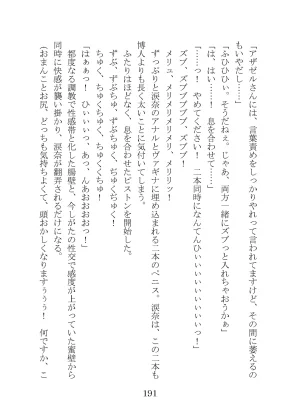 「アザゼルさんには、言葉責めをしっかりやれって言われてますけど、その間に萎えるのもいやだし……」
「ふひひひぃ。そうだねぇ。じゃあ、両方一緒にズブっと入れちゃおうかぁ」
「は、はい……！　息を合わせて……」
「……っ！　やめてください！　二本同時になんてんひぃぃぃぃぃぃぃっ！」
ズブ、ズブブブブブ、ズブブ！
メリュ、メリリメリメリ、メリリッ！
ずっぷりと涙奈のアナルとヴァギナに埋め込まれる二本のペニス。涙奈は、この二本も博人よりも長く太いことに気付いてしまう。
ふたりはほどなく、息を合わせたピストンを開始した。
ずぶ、ずぶちゅく、ずぶちゅくちゅく！
ちゅく、ちゅくちゅく、ちゅくちゅ！
「はぁぁっ！　ひぃぃぃっ、あっ、んあおおおおっ！」
都度なる調教で性感帯と化した腸壁と、今しがたの性交で感度が上がっていた蜜壁から同時に快感が襲い掛かり、涙奈が翻弄されるだけになる。
（おまんことお尻、どっちも気持ちよくて、頭おかしくなりますぅぅぅ！　何ですか、こ
191